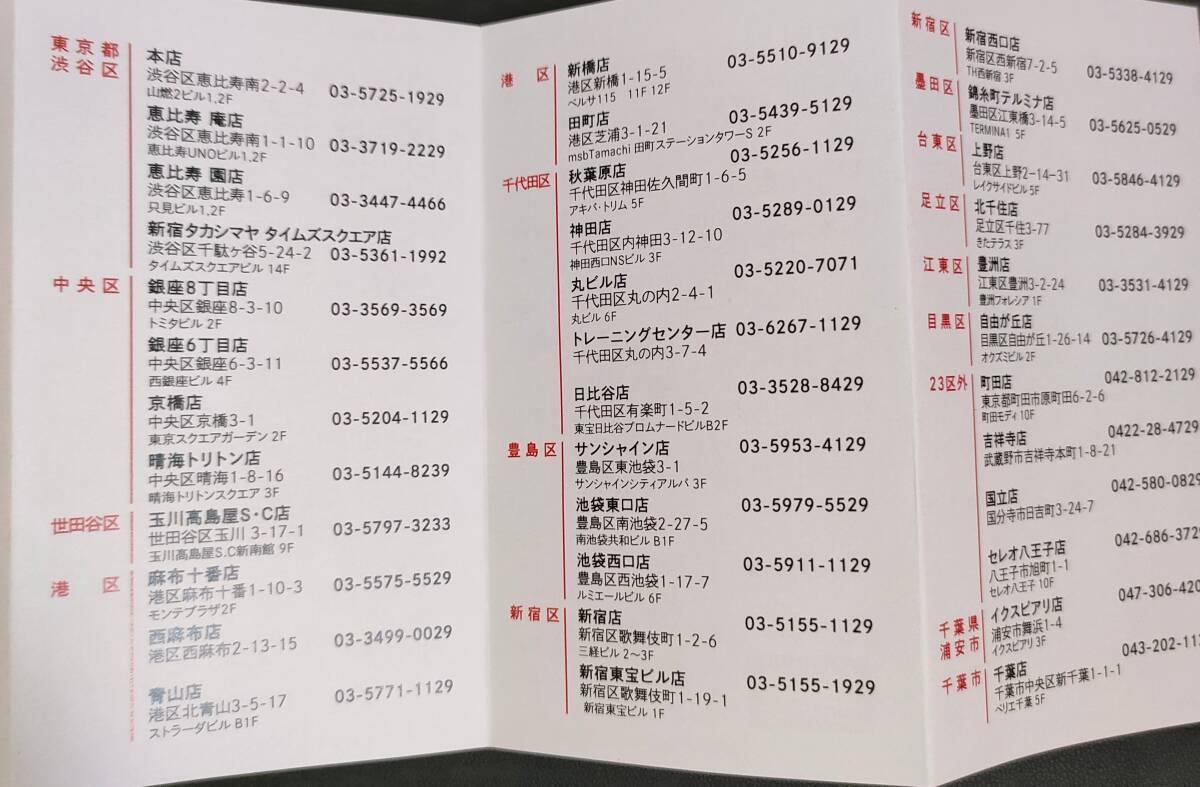 東京都
渋谷区
本店
渋谷区恵比寿南2-2-4 03-5725-1929
山燃2ビル1,2F
恵比寿 庵店
渋谷区恵比寿南1-1-10 03-3719-2229
恵比寿UNOビル1,2F
恵比寿 園店
渋谷区恵比寿1-6-9 03-3447-4466
只見ビル1,2F
新宿タカシマヤ タイムズスクエア店
渋谷区千駄ヶ谷5-24-2 03-5361-1992
タイムズスクエアビル 14F
中央区
銀座8丁目店
中央区銀座8-3-10 03-3569-3569
トミタビル 2F
銀座6丁目店
中央区銀座6-3-11 03-5537-5566
西銀座ビル 4F
京橋店
中央区京橋3-1 03-5204-1129
東京スクエアガーデン 2F
晴海トリトン店
中央区晴海1-8-16 03-5144-8239
晴海トリトンスクエア 3F
世田谷区
玉川高島屋S・C店
世田谷区玉川 3-17-1 03-5797-3233
玉川高島屋S.C新南館 9F
港区
麻布十番店
港区麻布十番1-10-3 03-5575-5529
モンテプラザ2F
西麻布店
港区西麻布2-13-15 03-3499-0029
青山店
港区北青山3-5-17 03-5771-1129
ストラーダビル B1F
港区
新橋店 03-5510-9129
港区新橋1-15-5
ベルサ115 11F 12F
田町店 03-5439-5129
港区芝浦3-1-21
msbTamachi 田町ステーションタワーS 2F
千代田区
秋葉原店 03-5256-1129
千代田区神田佐久間町1-6-5
アキバ・トリム 5F
神田店 03-5289-0129
千代田区内神田3-12-10
神田西口NSビル 3F
丸ビル店 03-5220-7071
千代田区丸の内2-4-1
丸ビル 6F
トレーニングセンター店 03-6267-1129
千代田区丸の内3-7-4
日比谷店 03-3528-8429
千代田区有楽町1-5-2
東宝日比谷プロムナードビルB2F
豊島区
サンシャイン店 03-5953-4129
豊島区東池袋3-1
サンシャインシティアルパ 3F
池袋東口店 03-5979-5529
豊島区南池袋2-27-5
南池袋共和ビル B1F
池袋西口店 03-5911-1129
豊島区西池袋1-17-7
ルミエールビル 6F
新宿区
新宿店 03-5155-1129
新宿区歌舞伎町1-2-6
三経ビル 2〜3F
新宿東宝ビル店 03-5155-1929
新宿区歌舞伎町1-19-1
新宿東宝ビル 1F
新宿区
新宿西口店
新宿区西新宿7-2-5 03-5338-4129
TH西新宿 3F
墨田区
錦糸町テルミナ店
墨田区江東橋3-14-5 03-5625-0529
TERMINA1 5F
台東区
上野店
台東区上野2-14-31 03-5846-4129
レイクサイドビル 5F
足立区
北千住店
足立区千住3-77 03-5284-3929
きたテラス 3F
江東区
豊洲店
江東区豊洲3-2-24 03-3531-4129
豊洲フォレシア 1F
目黒区
自由が丘店
目黒区自由が丘1-26-14 03-5726-4129
オクズミビル 2F
23区外
町田店 042-812-2129
東京都町田市原町田6-2-6
町田モディ 10F
吉祥寺店 0422-28-4729
武蔵野市吉祥寺本町1-8-21
国立店 042-580-0829
国分寺市日吉町3-24-7
セレオ八王子店 042-686-3729
八王子市旭町1-1
セレオ八王子 10F
千葉県
浦安市
イクスピアリ店 047-306-420
浦安市舞浜1-4
イクスピアリ 3F
千葉市
千葉店 043-202-112
千葉市中央区新千葉1-1-1
ペリエ千葉 5F